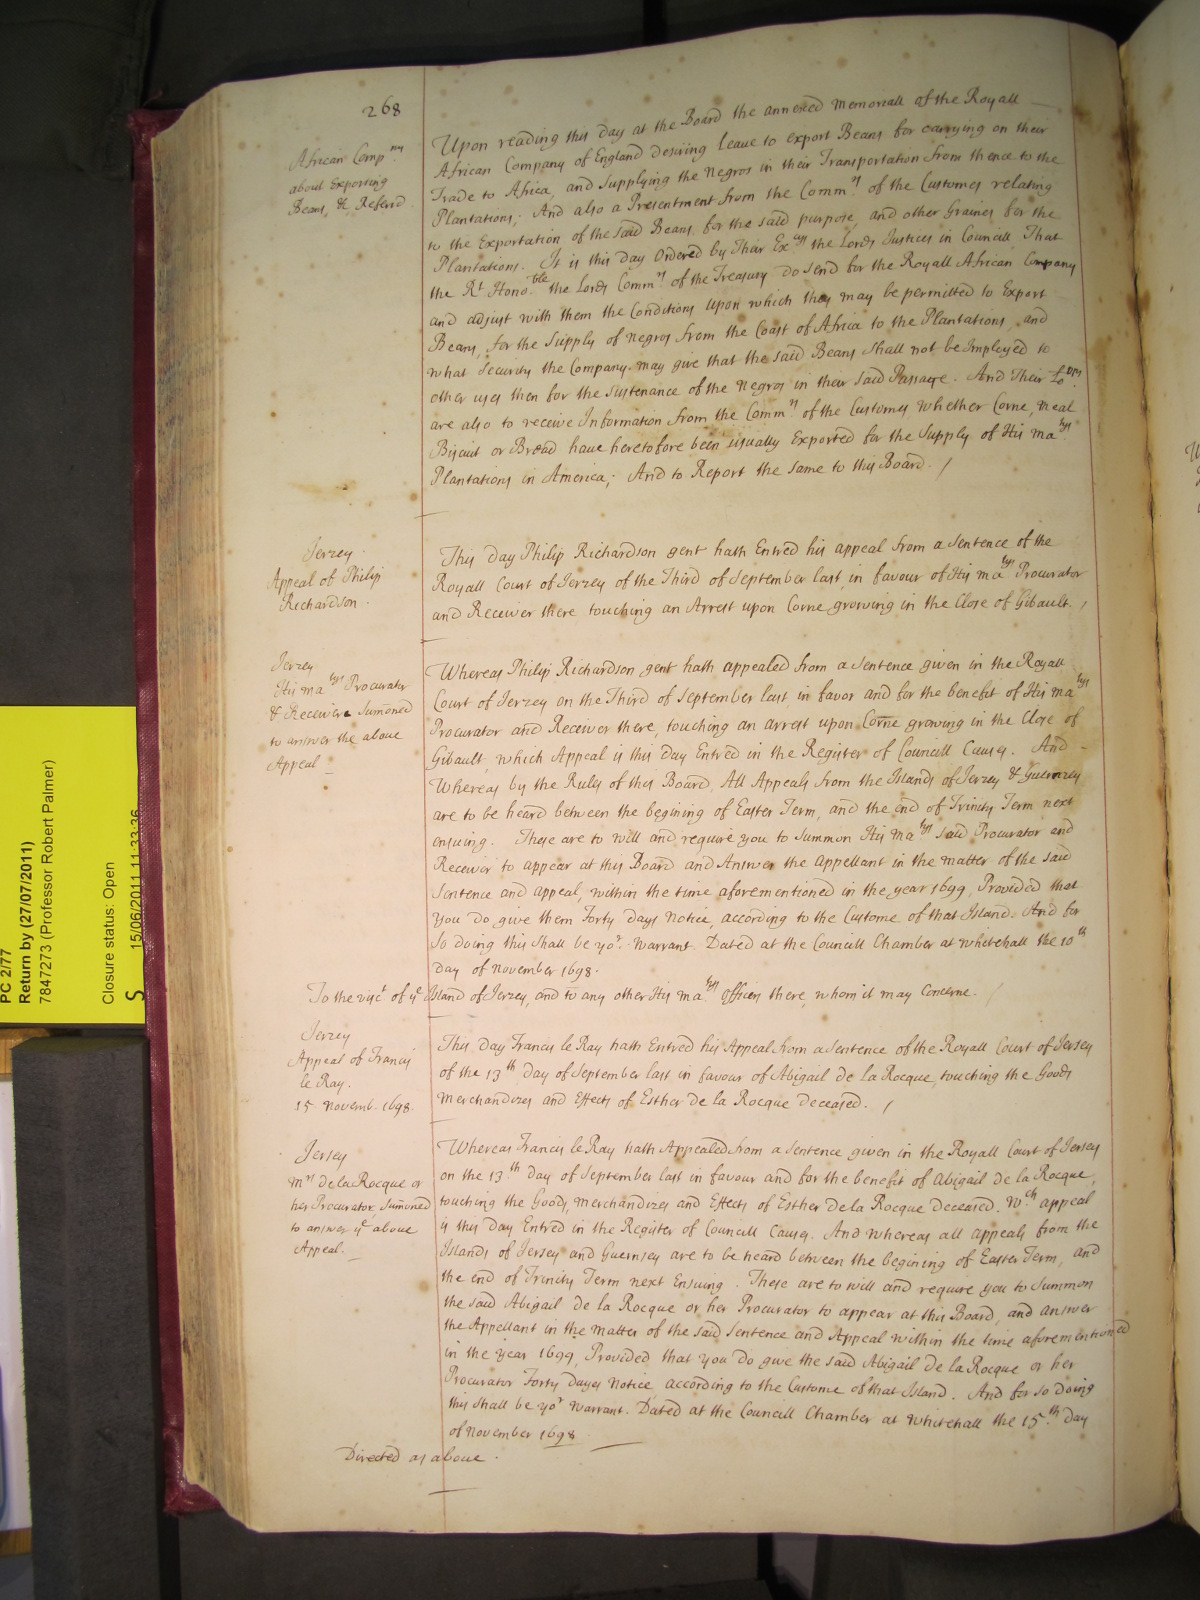 268
African Comp.ny
about Exporting
Beans, &c, Referrd
Upon reading this day at the Board the annexed Memoriall of the Royall
African Company of England desiring leave to export Beans for carrying on their
Trade to Africa, and supplying the Negros in their Transportation from thence to the
Plantations; And also a Presentment from the Comm.rs of the Customes relating
to the Exportation of the said Beans, for the said purpose, and other Graines for the
Plantations. It is this day Ordered by Their Ex.cys the Lords Justices in Councill, That
the R.t Hono.ble the Lords Comm.rs of the Treasury do send for the Royall African Company
and adjust with them the Conditions upon which they may be permitted to Export
Beans, for the Supply of Negros from the Coast of Africa to the Plantations, and
what Security the Company may give that the said Beans shall not be Imployed to
other uses then for the Sustenance of the Negros in their said Passage. And Their Lo.pps
are also to receive Information from the Comm.rs of the Customes whether Corne, Meal
Biscuit or Bread have heretofore been usually Exported for the Supply of His Ma.tys
Plantations in America; And to Report the same to this Board. /
Jerzey
Appeal of Philip
Richardson.
This day Philip Richardson gent hath Entred his appeal from a Sentence of the
Royall Court of Jerzey of the Third of September last, in favour of His Ma.tys Procurator
and Receiver there touching an Arrest upon Corne growing in the Close of Gibault. /
Jerzey
His Ma.tys Procurator
& Receiver Sumoned
to answer the above
Appeal _
Whereas Philip Richardson gent hath appealed from a Sentence given in the Royall
Court of Jerzey on the Third of September last, in favor and for the benefit of His Ma.tys
Procurator and Receiver there, touching an arrest upon Corne growing in the Close of
Gibault, which Appeal is this day Entred in the Register of Councill Causes. And
Whereas by the Rules of this Board, All Appeals from the Islands of Jerzey & Guernzey
are to be heard between the begining of Easter Term, and the end of Trinity Term next
ensuing. These are to will and require you to Summon His Ma.tys said Procurator and
Receiver to appear at this Board and Answer the appellant in the matter of the said
Sentence and appeal, within the time aforementioned in the year 1699, Provided that
you do give them Forty days Notice, according to the Custome of that Island. And for
so doing this shall be yo.r warrant. Dated at the Councill Chamber at Whitehall the 10.th
day of November 1698.
To the Visc.t of y.e Island of Jerzey, and to any other His Ma.tys officers there, whom it may Concerne. /
Jerzey
Appeal of Francis
le Ray.
15 Novemb. 1698.
This day Francis le Ray hath Entred his Appeal from a Sentence of the Royall Court of Jersey
of the 13.th day of September last in favour of Abigail de la Rocque, touching the Goods
Merchandizes and Effects of Esther de la Rocque deceased. /
Jersey
M.rs de la Rocque or
her Procurator, Sumoned
to answer y.e above
Appeal. _
Whereas Francis le Ray hath Appealed from a Sentence given in the Royall Court of Jersey
on the 13.th day of September last in favour and for the benefit of Abigail de la Rocque,
touching the Goods, Merchandizes and Effects of Esther de la Rocque deceased. W.ch appeal
is this day Entred in the Register of Councill Causes. And whereas all appeals from the
Islands of Jersey and Guernsey are to be heard between the begining of Easter Term, and
the end of Trinity Term next Ensuing. These are to will and require you to Summon
the said Abigail de la Rocque or her Procurator to appear at this Board, and answer
the Appellant in the matter of the said Sentence and Appeal within the time aforementioned
in the year 1699, Provided that you do give the said Abigail de la Rocque or her
Procurator Forty Dayes Notice, according to the Custome of that Island. And for so doing
this shall be yo.r warrant. Dated at the Councill Chamber at Whitehall the 15.th day
of November 1698.
Directed as above.
PC 2/77
Return by (27/07/2011)
7847273 (Professor Robert Palmer)
Closure status: Open
S 15/06/2011 11:33:36